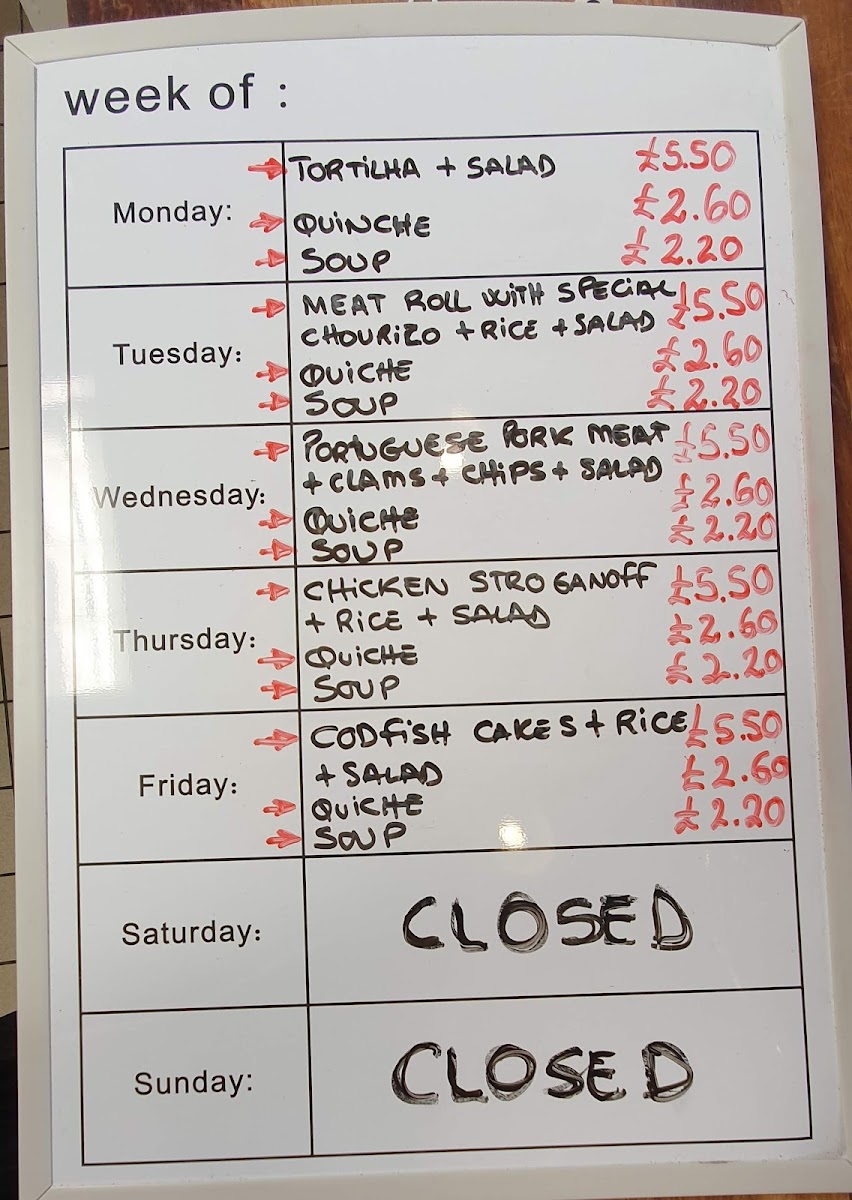 week of :
Monday:
→ TORTiLHA + SALAD £5.50
→ QUiNCHE £2.60
→ SOUP £2.20
Tuesday:
→ MEAT ROLL WiTH SPECiAL £5.50
CHOURiZO + RiCE + SALAD
→ QUiCHE £2.60
→ SOUP £2.20
Wednesday:
→ PORTUGUESE PORK MEAT £5.50
+ CLAMS + CHiPS + SALAD
→ QUiCHE £2.60
→ SOUP £2.20
Thursday:
→ CHiCKEN STROGANOFF £5.50
+ RiCE + SALAD
→ QUiCHE £2.60
→ SOUP £2.20
Friday:
→ CODFiSH CAKES + RiCE £5.50
+ SALAD
→ QUiCHE £2.60
→ SOUP £2.20
Saturday: CLOSED
Sunday: CLOSED